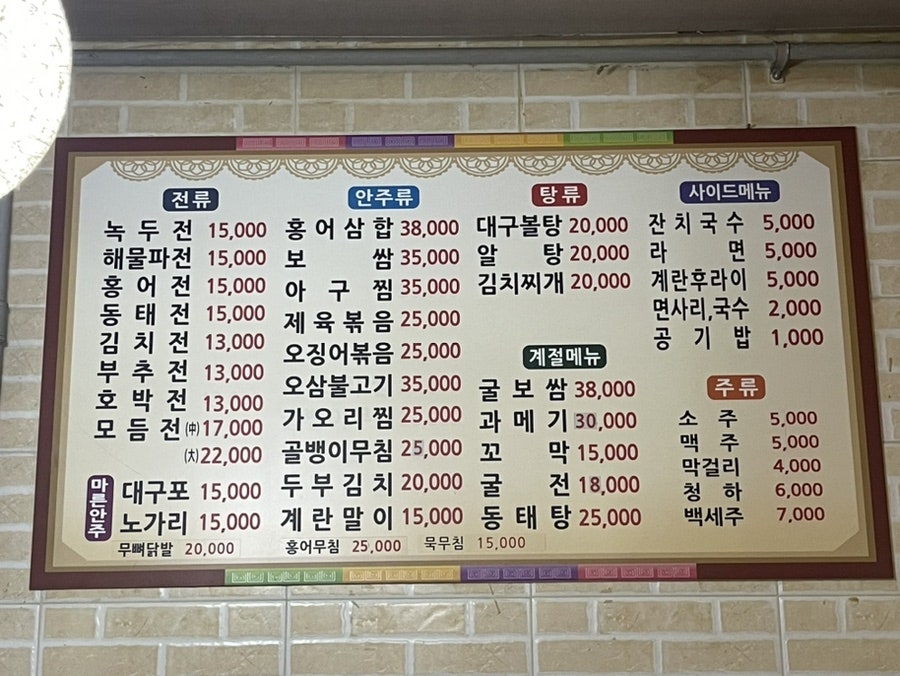 전류
녹두전 15,000
해물파전 15,000
홍어전 15,000
동태전 15,000
김치전 13,000
부추전 13,000
호박전 13,000
모듬전(中) 17,000
(大) 22,000
마른안주
대구포 15,000
노가리 15,000
무뼈닭발 20,000
안주류
홍어삼합 38,000
보쌈 35,000
아구찜 35,000
제육볶음 25,000
오징어볶음 25,000
오삼불고기 35,000
가오리찜 25,000
골뱅이무침 25,000
두부김치 20,000
계란말이 15,000
홍어무침 25,000
묵무침 15,000
탕류
대구볼탕 20,000
알탕 20,000
김치찌개 20,000
계절메뉴
굴보쌈 38,000
과메기 30,000
꼬막 15,000
굴전 18,000
동태탕 25,000
사이드메뉴
잔치국수 5,000
라면 5,000
계란후라이 5,000
면사리,국수 2,000
공기밥 1,000
주류
소주 5,000
맥주 5,000
막걸리 4,000
청하 6,000
백세주 7,000